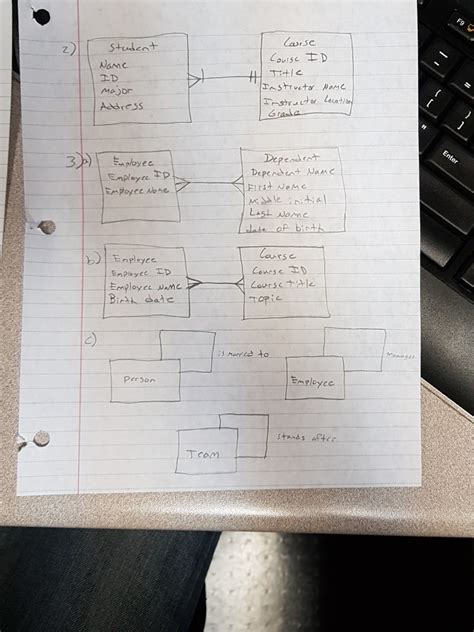 2)
Student
Name
ID
Major
Address
Course
Course ID
Title
Instructor Name
Instructor Location
Grade
3) a)
Employee
Employee ID
Employee Name
Dependent
Dependent Name
First Name
Middle initial
Last Name
date of birth
b)
Employee
Employee ID
Employee Name
Birth date
Course
Course ID
Course Title
Topic
c)
Person
is married to
Employee
manages
Team
stands after
Enter
F9